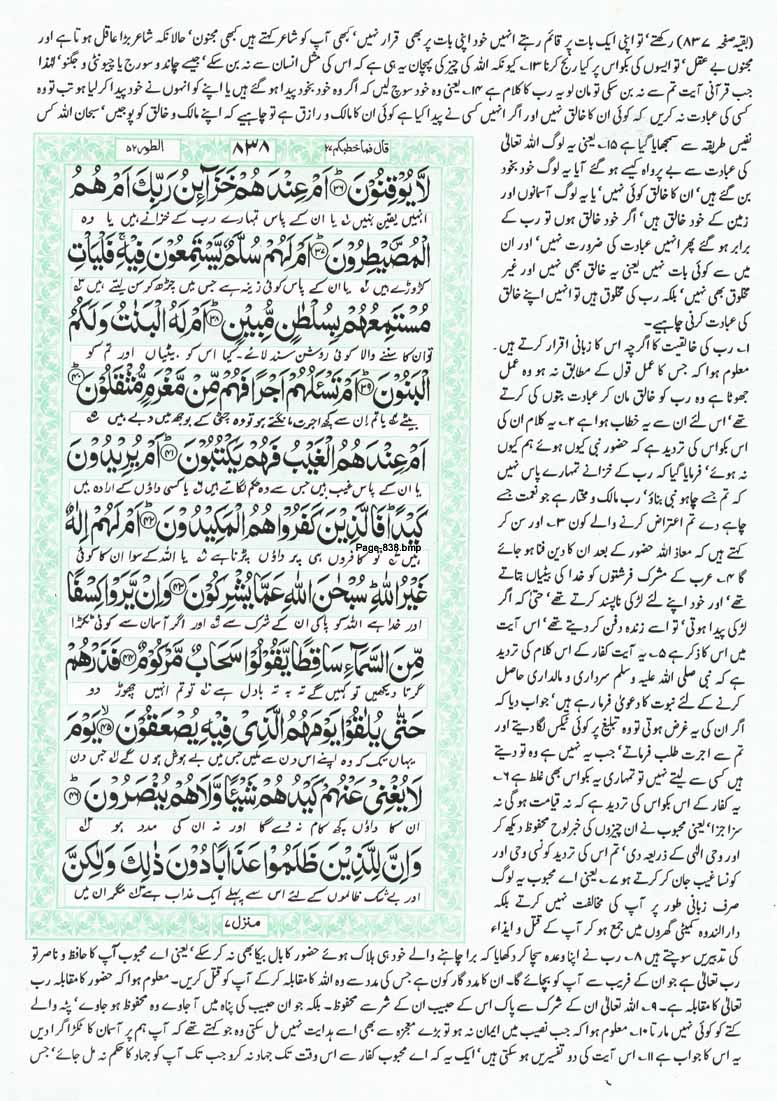 (بقیہ صفحہ ۸۳۷) رکھتے، تو اپنی ایک بات پر قائم رہتے انہیں خود اپنی بات پر بھی قرار نہیں، کبھی آپ کو شاعر کہتے ہیں کبھی مجنون، حالانکہ شاعر بڑا عاقل ہوتا ہے اور
مجنوں بے عقل، تو ایسوں کی بکواس پر کیا رنج کرنا ۱۳؎ کیونکہ اللہ کی چیز کی پہچان یہ ہی ہے کہ اس کی مثل انسان سے نہ بن سکے، جیسے چاند و سورج یا چیونٹی و جگنو، لہٰذا
جب قرآنی آیت تم سے نہ بن سکی تو مان لو یہ رب کا کلام ہے ۱۴؎ یعنی وہ خود سوچ لیں کہ اگر وہ خود بخود پیدا ہو گئے ہیں یا اپنے کو انہوں نے خود پیدا کر لیا ہو تب تو وہ
کسی کی عبادت نہ کریں کہ کوئی ان کا خالق نہیں اور اگر انہیں کسی نے پیدا کیا ہے کوئی ان کا مالک و رازق ہے تو چاہیے کہ اپنے مالک و خالق کو پوجیں، سبحان اللہ کس
نفیس طریقہ سے سمجھایا گیا ہے ۱۵؎ یعنی یہ لوگ اللہ تعالٰی
کی عبادت سے بے پرواہ کیسے ہو گئے آیا یہ خود بخود
بن گئے ہیں، ان کا خالق کوئی نہیں، یا یہ لوگ آسمانوں اور
زمین کے خود خالق ہیں، اگر خود خالق ہوں تو رب کے
برابر ہو گئے پھر انہیں عبادت کی ضرورت نہیں، اور ان
میں سے کوئی بات نہیں یعنی یہ خالق بھی نہیں اور غیر
مخلوق بھی نہیں، بلکہ رب کی مخلوق ہیں تو انہیں اپنے خالق
کی عبادت کرنی چاہیے۔
۱؎ رب کی خالقیت کا اگرچہ اس کا زبانی اقرار کرتے ہیں
معلوم ہوا کہ جس کا عمل قول کے مطابق نہ ہو وہ عمل
جھوٹا ہے وہ رب کو خالق مان کر عبادت بتوں کی کرتے
تھے، اس لئے ان سے یہ خطاب ہوا ہے ۲؎ یہ کلام ان کی
اس بکواس کی تردید ہے کہ حضور نبی کیوں ہوئے ہم کیوں
نہ ہوئے، فرمایا گیا کہ رب کے خزانے تمہارے پاس نہیں
کہ تم جسے چاہو نبی بناؤ، رب مالک و مختار ہے جو نعمت جسے
چاہے دے تم اعتراض کرنے والے کون ۳؎ اور سن کر
کہتے ہیں کہ معاذ اللہ حضور کے بعد ان کا دین فنا ہو جائے
گا ۴؎ عرب کے مشرک فرشتوں کو خدا کی بیٹیاں بتاتے
تھے، اور خود اپنے لئے لڑکی ناپسند کرتے تھے، حتیٰ کہ اگر
لڑکی پیدا ہوتی، تو اسے زندہ دفن کر دیتے تھے، اس آیت
میں اس کا ذکر ہے ۵؎ یہ آیت کفار کے اس کلام کی تردید
ہے کہ نبی صلی اللہ علیہ وسلم سرداری و مالداری حاصل
کرنے کے لئے نبوت کا دعویٰ فرما رہے ہیں، جواب دیا کہ
اگر ان کی یہ غرض ہوتی تو وہ تبلیغ پر کوئی ٹیکس لگا دیتے اور
تم سے اجرت طلب فرماتے، جب یہ نہیں ہے وہ تو دیتے
ہیں کسی سے لیتے نہیں تو تمہاری یہ بکواس بھی غلط ہے ۶؎
یہ کفار کے اس بکواس کی تردید ہے کہ نہ قیامت ہو گی نہ
سزا جزا، یعنی محبوب نے ان چیزوں کی خبر لوح محفوظ دیکھ کر
اور وحی الٰہی کے ذریعہ دی، تم اس کی تردید کونسی وحی اور
کونسا غیب جان کر کرتے ہو ۷؎ یعنی اے محبوب یہ لوگ
صرف زبانی طور پر آپ کی مخالفت نہیں کرتے بلکہ
دارالندوہ کمیٹی گھروں میں جمع ہو کر آپ کے قتل و ایذاء
قال فما خطبکم ۲۷ ۸۳۸ الطور ۵۲
لَا یُوْقِنُوْنَ ۳۶ اَمْ عِنْدَهُمْ خَزَآئِنُ رَبِّكَ اَمْ هُمُ
انہیں یقین نہیں ۱؎ یا ان کے پاس تمہارے رب کے خزانے ہیں یا وہ
الْمُصَۜیْطِرُوْنَ ۳۷ اَمْ لَهُمْ سُلَّمٌ یَّسْتَمِعُوْنَ فِیْهِ ۚ فَلْیَاْتِ
کڑوڑے ہیں ۲؎ یا ان کے پاس کوئی زینہ ہے جس میں چڑھ کر سن لیتے ہیں ۳؎
مُسْتَمِعُهُمْ بِسُلْطٰنٍ مُّبِیْنٍ ۳۸ اَمْ لَهُ الْبَنٰتُ وَلَكُمُ
تو ان کا سننے والا کوئی روشن سند لائے۔ کیا اس کو بیٹیاں اور تم کو
الْبَنُوْنَ ۳۹ اَمْ تَسْئَلُهُمْ اَجْرًا فَهُمْ مِّنْ مَّغْرَمٍ مُّثْقَلُوْنَ ۴۰
بیٹے ۴؎ یا تم ان سے کچھ اجرت مانگتے ہو تو وہ چٹی کے بوجھ میں دبے ہیں ۵؎
اَمْ عِنْدَهُمُ الْغَیْبُ فَهُمْ یَكْتُبُوْنَ ۴۱ اَمْ یُرِیْدُوْنَ
یا ان کے پاس غیب ہیں جس سے وہ حکم لگاتے ہیں ۶؎ یا کسی داؤں کے ارادہ میں
كَیْدًا ؕ فَالَّذِیْنَ كَفَرُوْا هُمُ الْمَكِیْدُوْنَ ۴۲ اَمْ لَهُمْ اِلٰهٌ
ہیں ۷؎ تو کافروں ہی پر داؤں پڑنا ہے ۸؎ یا اللہ کے سوا ان کا کوئی
Page-838.bmp
غَیْرُ اللّٰهِ ؕ سُبْحٰنَ اللّٰهِ عَمَّا یُشْرِكُوْنَ ۴۳ وَاِنْ یَّرَوْا كِسْفًا
اور خدا ہے اللہ کو پاکی ان کے شرک سے ۹؎ اور اگر آسمان سے کوئی ٹکڑا
مِّنَ السَّمَآءِ سَاقِطًا یَّقُوْلُوْا سَحَابٌ مَّرْكُوْمٌ ۴۴ فَذَرْهُمْ
گرتا دیکھیں تو کہیں گے تہ بہ تہ بادل ہے ۱۰؎ تو تم انہیں چھوڑ دو
حَتّٰی یُلٰقُوْا یَوْمَهُمُ الَّذِیْ فِیْهِ یُصْعَقُوْنَ ۴۵ یَوْمَ
یہاں تک کہ وہ اپنے اس دن سے ملیں جس میں بے ہوش ہوں گے ۱۱؎ جس دن
لَا یُغْنِیْ عَنْهُمْ كَیْدُهُمْ شَیْئًا وَّلَا هُمْ یُنْصَرُوْنَ ۴۶
ان کا داؤں کچھ کام نہ دے گا اور نہ ان کی مدد ہو
وَاِنَّ لِلَّذِیْنَ ظَلَمُوْا عَذَابًا دُوْنَ ذٰلِكَ وَلٰكِنَّ
اور بے شک ظالموں کے لئے اس سے پہلے ایک عذاب ہے مگر ان میں
منزل ۷
کی تدبیریں سوچتے ہیں ۸؎ رب نے اپنا وعدہ سچا کر دکھایا کہ برا چاہنے والے خود ہی ہلاک ہوئے حضور کا بال بیکا بھی نہ کر سکے، یعنی اے محبوب آپ کا حافظ و ناصر تو
رب تعالٰی ہے جو ان کے فریب سے آپ کو بچائے گا۔ ان کا مددگار کون ہے جس کی مدد سے وہ اللہ کا مقابلہ کر کے آپ کو قتل کریں۔ معلوم ہوا کہ حضور کا مقابلہ رب
تعالٰی کا مقابلہ ہے۔ ۹؎ اللہ تعالٰی ان کے شرک سے پاک اس کے حبیب ان کے شر سے محفوظ۔ بلکہ جو ان حبیب کی پناہ میں آ جاوے وہ محفوظ ہو جاوے، پٹہ والے
کتے کو کوئی نہیں مارتا ۱۰؎ معلوم ہوا کہ جب نصیب میں ایمان نہ ہو تو بڑے معجزہ سے بھی اسے ہدایت نہیں مل سکتی وہ جو کہتے تھے کہ آپ ہم پر آسمان کا ٹکڑا گرا دیں
یہ اس کا جواب ہے ۱۱؎ اس آیت کی دو تفسیریں ہو سکتی ہیں، ایک یہ کہ اے محبوب کفار سے اس وقت تک جہاد نہ کرو جب تک آپ کو جہاد کا حکم نہ مل جائے، جس